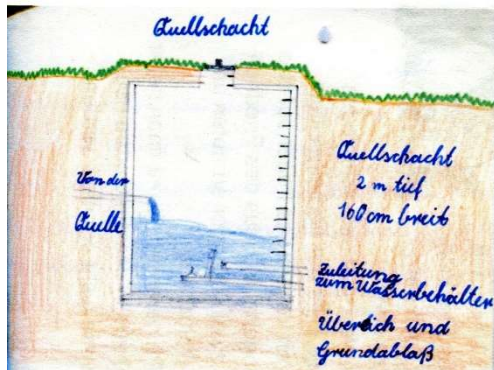 Quellschacht
Quellschacht
2 m tief
160 cm breit
Von der
Quelle
Zuleitung
zum Wasserbehälter
Überlich und
Grundablaß